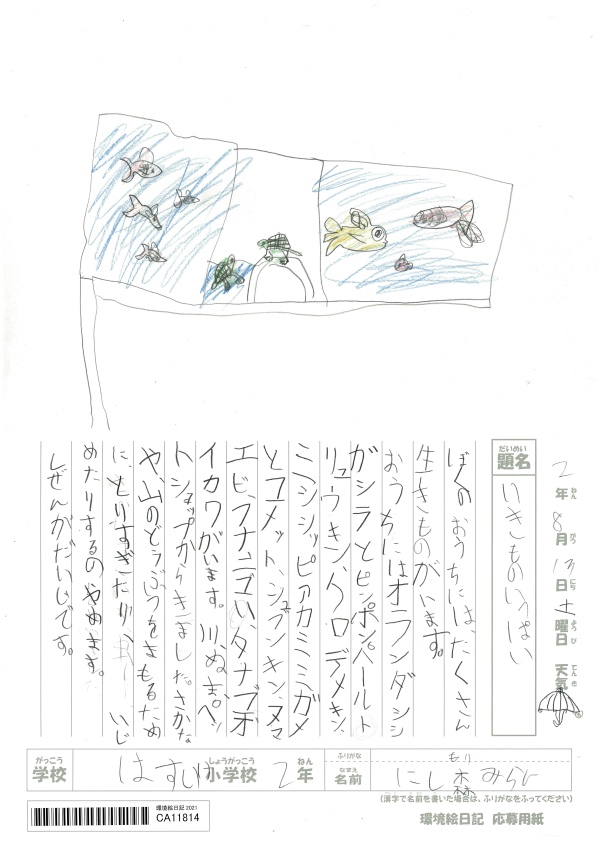 2年 8月 13日 土曜日 天気
ねん がつ にち ようび てんき
だいめい
題名
いきものいっぱい
ぼくの おうちには、たくさん
生きものがいます。
おうちにはオランダシシ
ガシラとピンポンパールト
リュウキン、クロデメキン、
ミシシッピアカミミガメ
とコメット、シュブンキン、ヌマ
エビ、フナ、ニゴイ、タナゴ、オ
イカワがいます。川、ぬま、ペッ
トショップからきました。さかな
や、山のどうぶつをまもるため
に、とりすぎたり、 いじ
めたりするのやめます。
しぜんがだいじです。
がっこう しょうがっこう ねん ふりがな もり
学校 小学校 2年 なまえ 名前 にし森 みらい
(漢字で名前を書いた場合は、ふりがなをふってください)
環境絵日記 2021
CA11814
環境絵日記 応募用紙